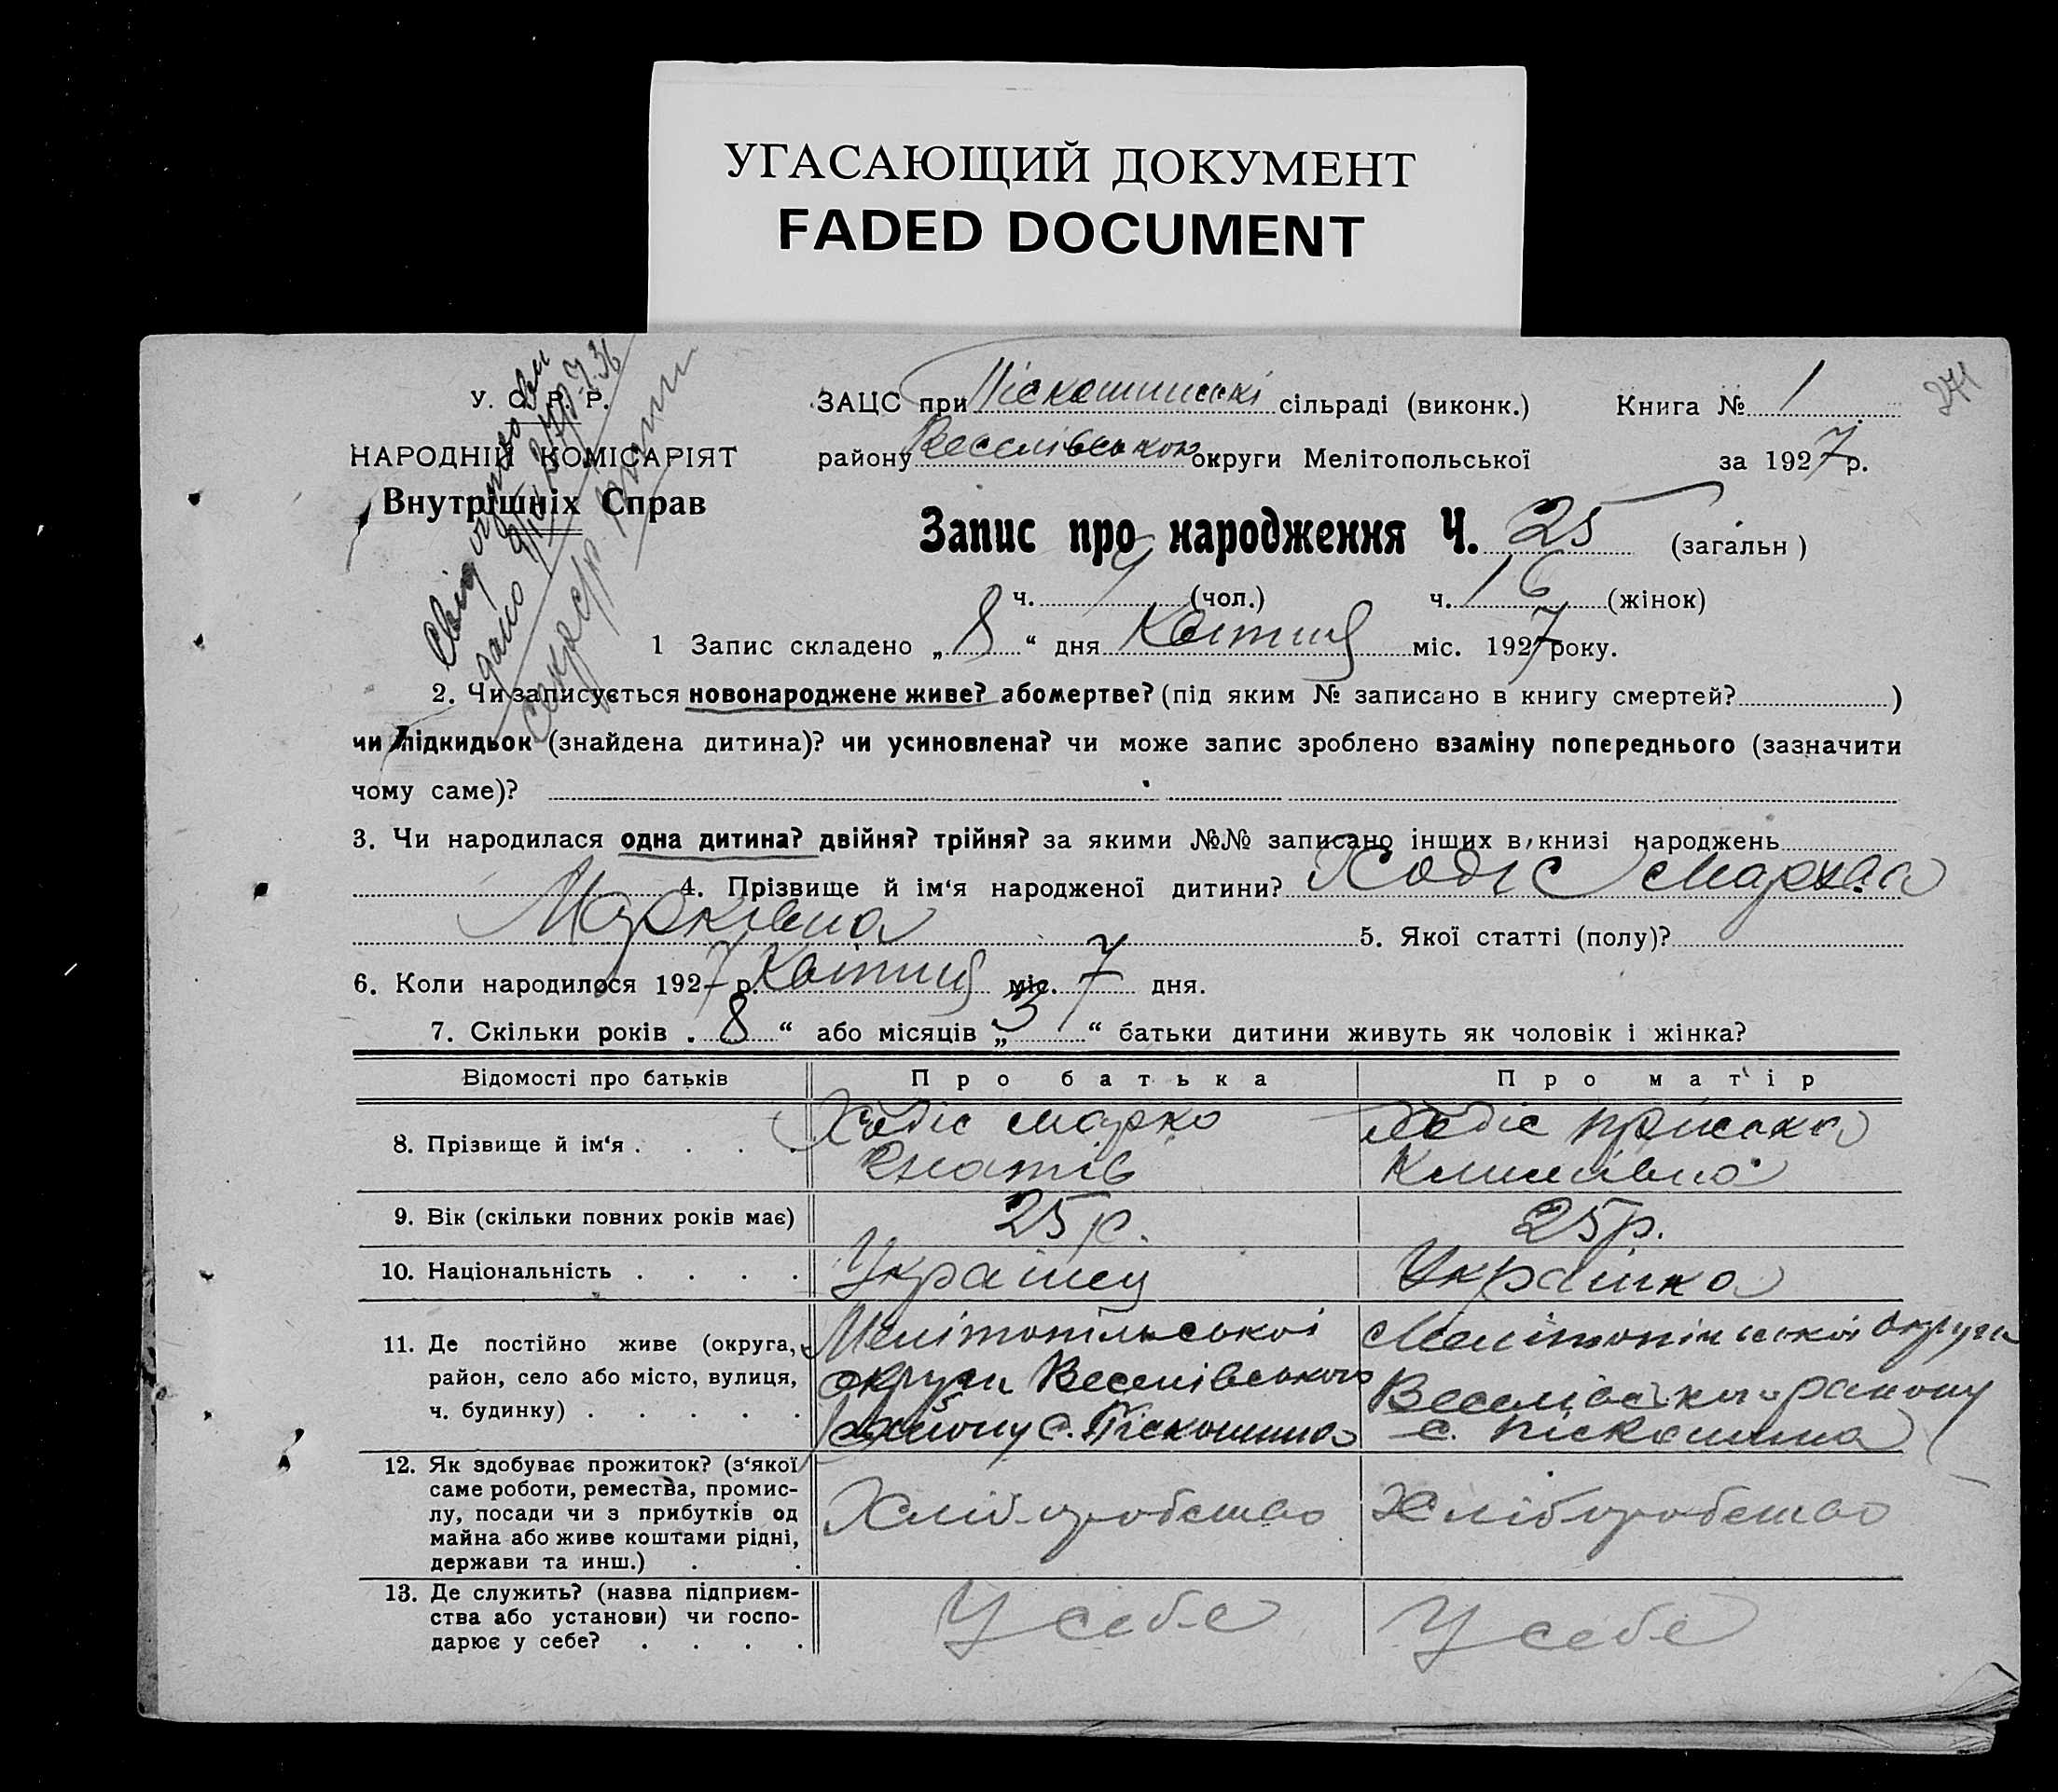 УГАСАЮЩИЙ ДОКУМЕНТ
FADED DOCUMENT
У. С. Р. Р.
НАРОДНІЙ КОМІСАРІЯТ
Внутрішніх Справ
ЗАЦС при Піскошинські сільраді (виконк.) Книга № 1
271
району Веселівськом округи Мелітопольської за 1927 р.
Запис про народження Ч. 25 (загальн)
ч. 9 (чол.) ч. 16 (жінок)
1 Запис складено „ 8 “ дня Квітня міс. 1927 року.
2. Чи записується новонароджене живе? або мертве? (під яким № записано в книгу смертей? )
чи підкидьок (знайдена дитина)? чи усиновлена? чи може запис зроблено взаміну попереднього (зазначити
чому саме)?
3. Чи народилася одна дитина? двійня? трійня? за якими №№ записано інших в книзі народжень
4. Прізвище й ім‘я народженої дитини? Ходіс
Марківна 5. Якої статті (полу)?
6. Коли народилося 1927 р. Квітня міс. 7 дня.
7. Скільки років „ 8 “ або місяців „ 3 “ батьки дитини живуть як чоловік і жінка?
Відомості про батьків Про батька Про матір
8. Прізвище й ім‘я . . . . Ходіс Марко Гнатів Ходіс Пріська Климівна
9. Вік (скільки повних років має) 25 р. 25 р.
10. Національність . . . . Українец Українка
11. Де постійно живе (округа, Мелітопільської Мелітопільської округи
район, село або місто, вулиця, округи Веселівського Веселівського району
ч. будинку) . . . . . району с. Піскошино с. Піскошина
12. Як здобуває прожиток? (з‘якої
саме роботи, ремества, промис-
лу, посади чи з прибутків од Хліборобство Хліборобство
майна або живе коштами рідні,
держави та инш.) . .
13. Де служить? (назва підприєм-
ства або установи) чи госпо- У себе У себе
дарює у себе? . . . .